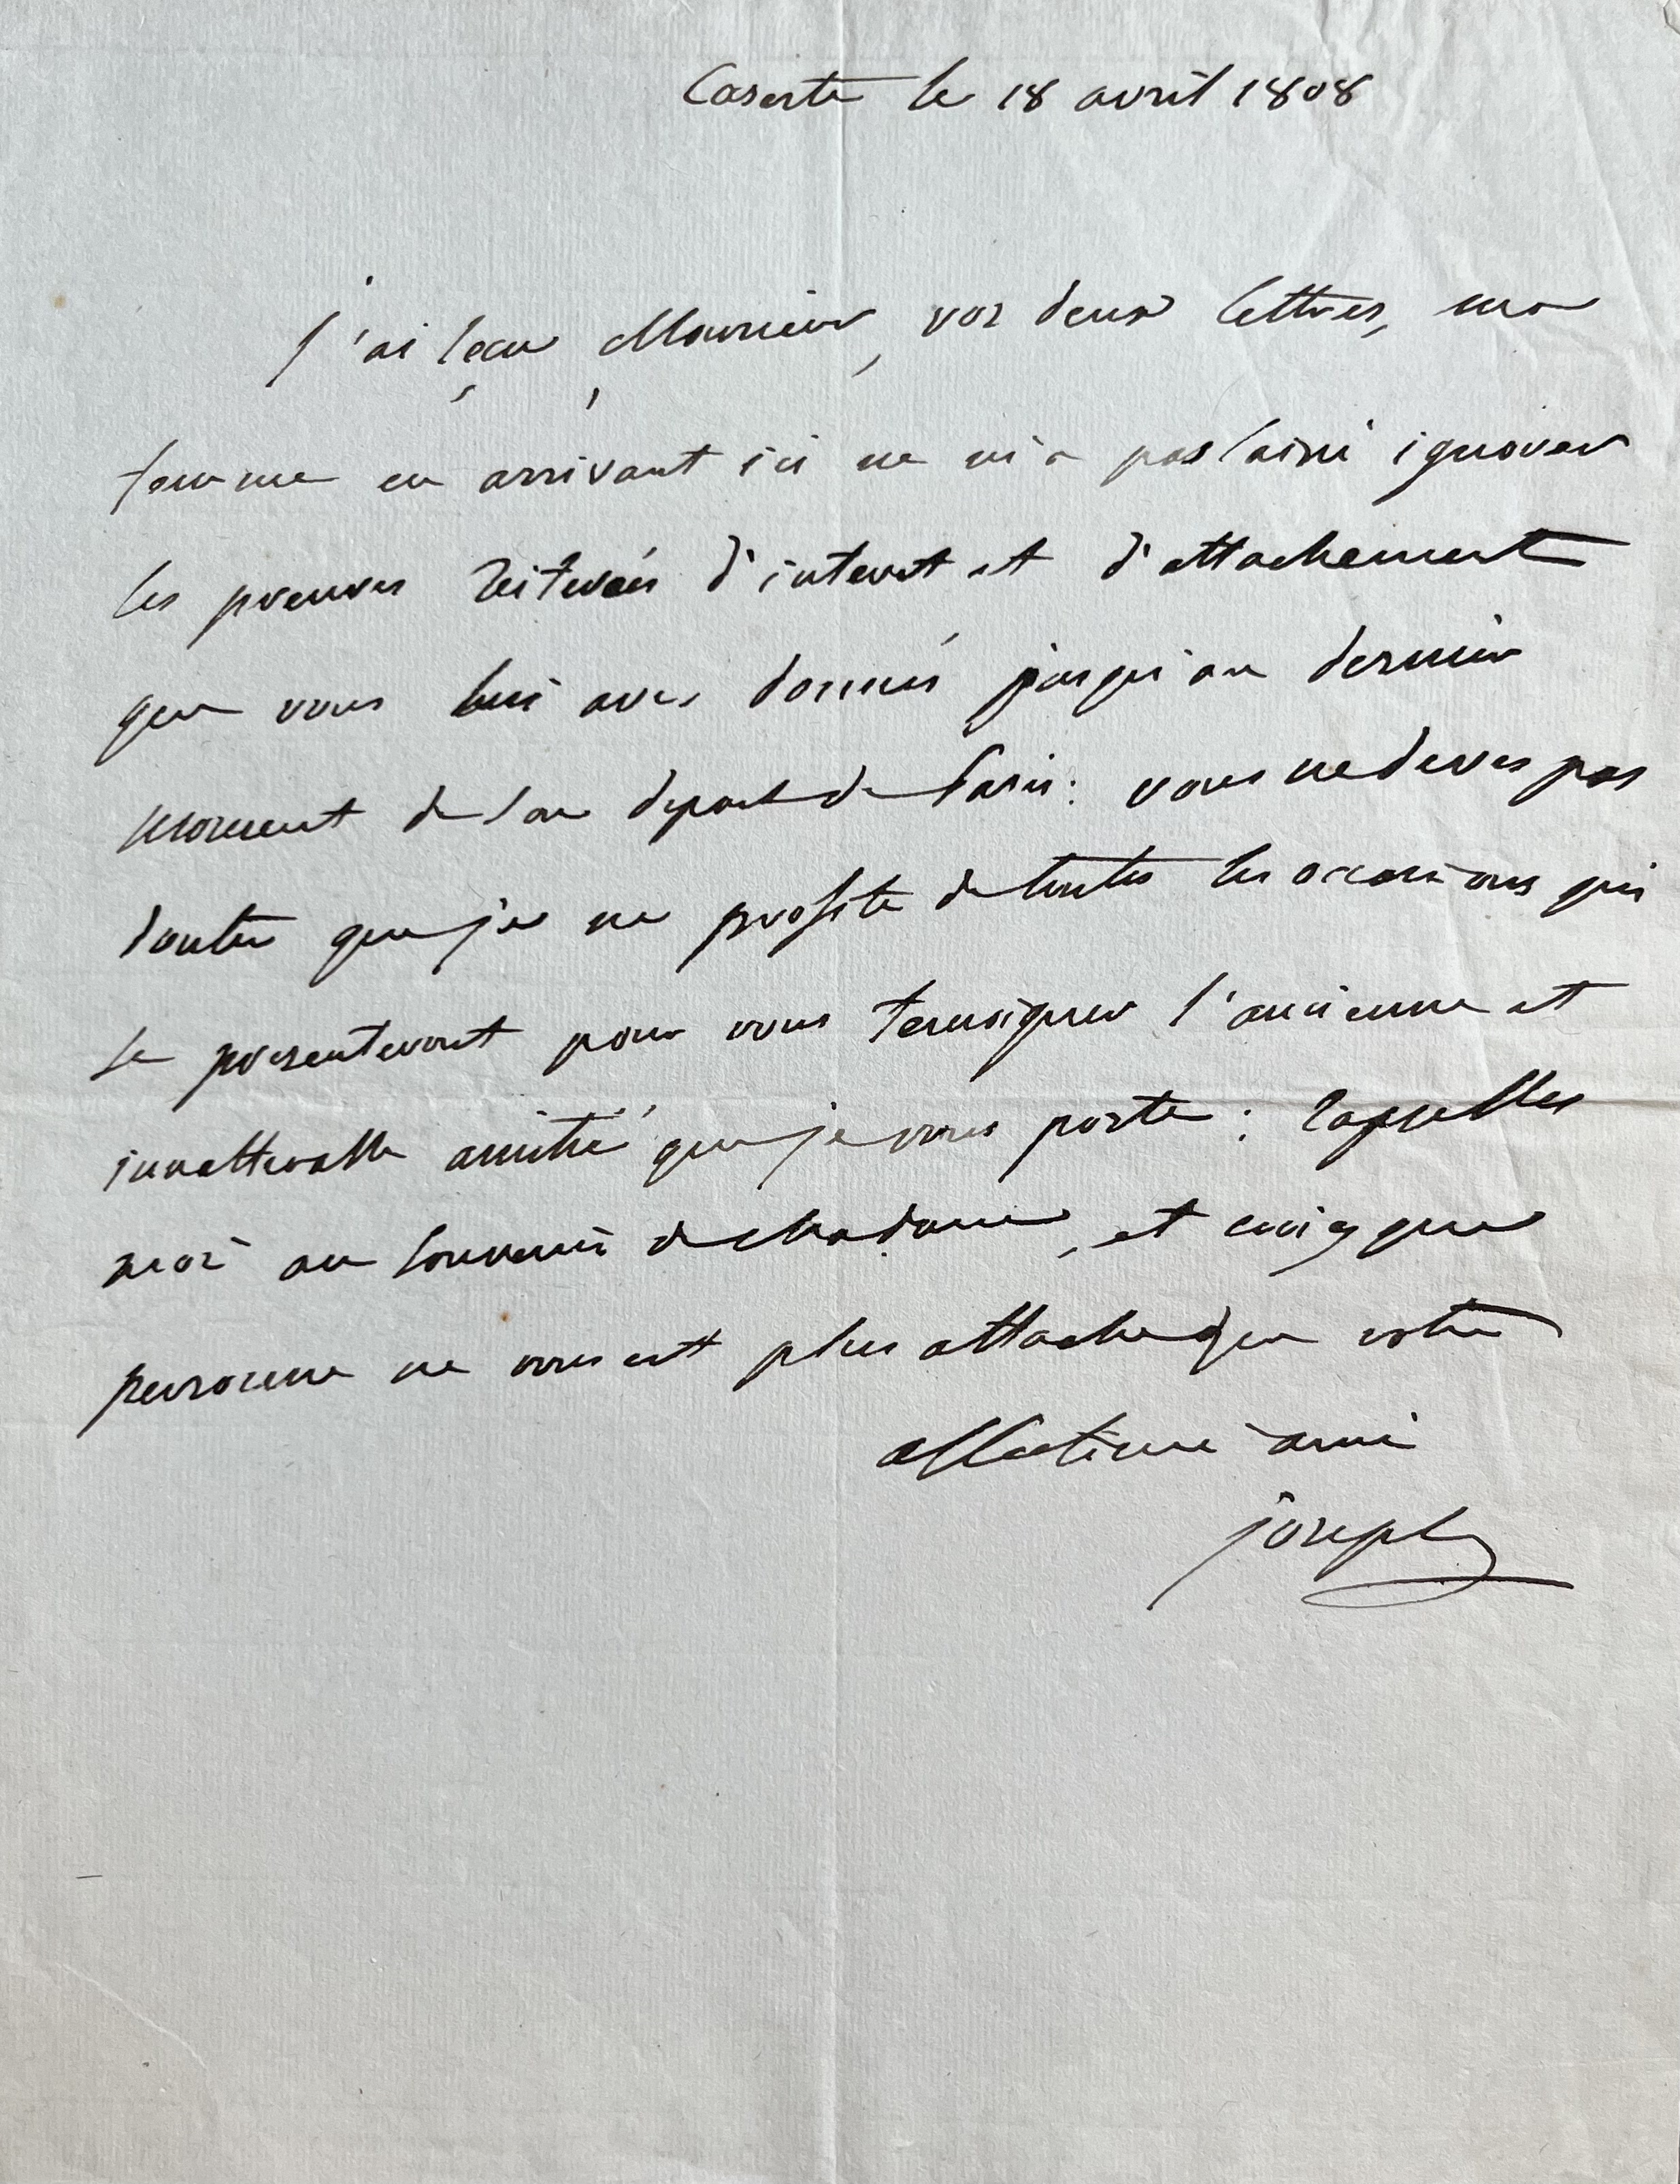 Caserte le 18 avril 1808
j'ai reçu, Monsieur, vos deux lettres, ma
femme en arrivant ici ne m'a pas laissé ignorer
les preuves reiterées d'interet et d'attachement
que vous lui aves donnés jusqu'au dernier
moment de son depart de Paris: vous ne deves pas
douter que je ne profite de toutes les occasions qui
se presenteront pour vous temoigner l'ancienne et
inalterable amitié que je vous porte: rappelles
moi au souvenir de Madame, et croiez que
personne ne vous est plus attaché que votre
affectioné ami
joseph